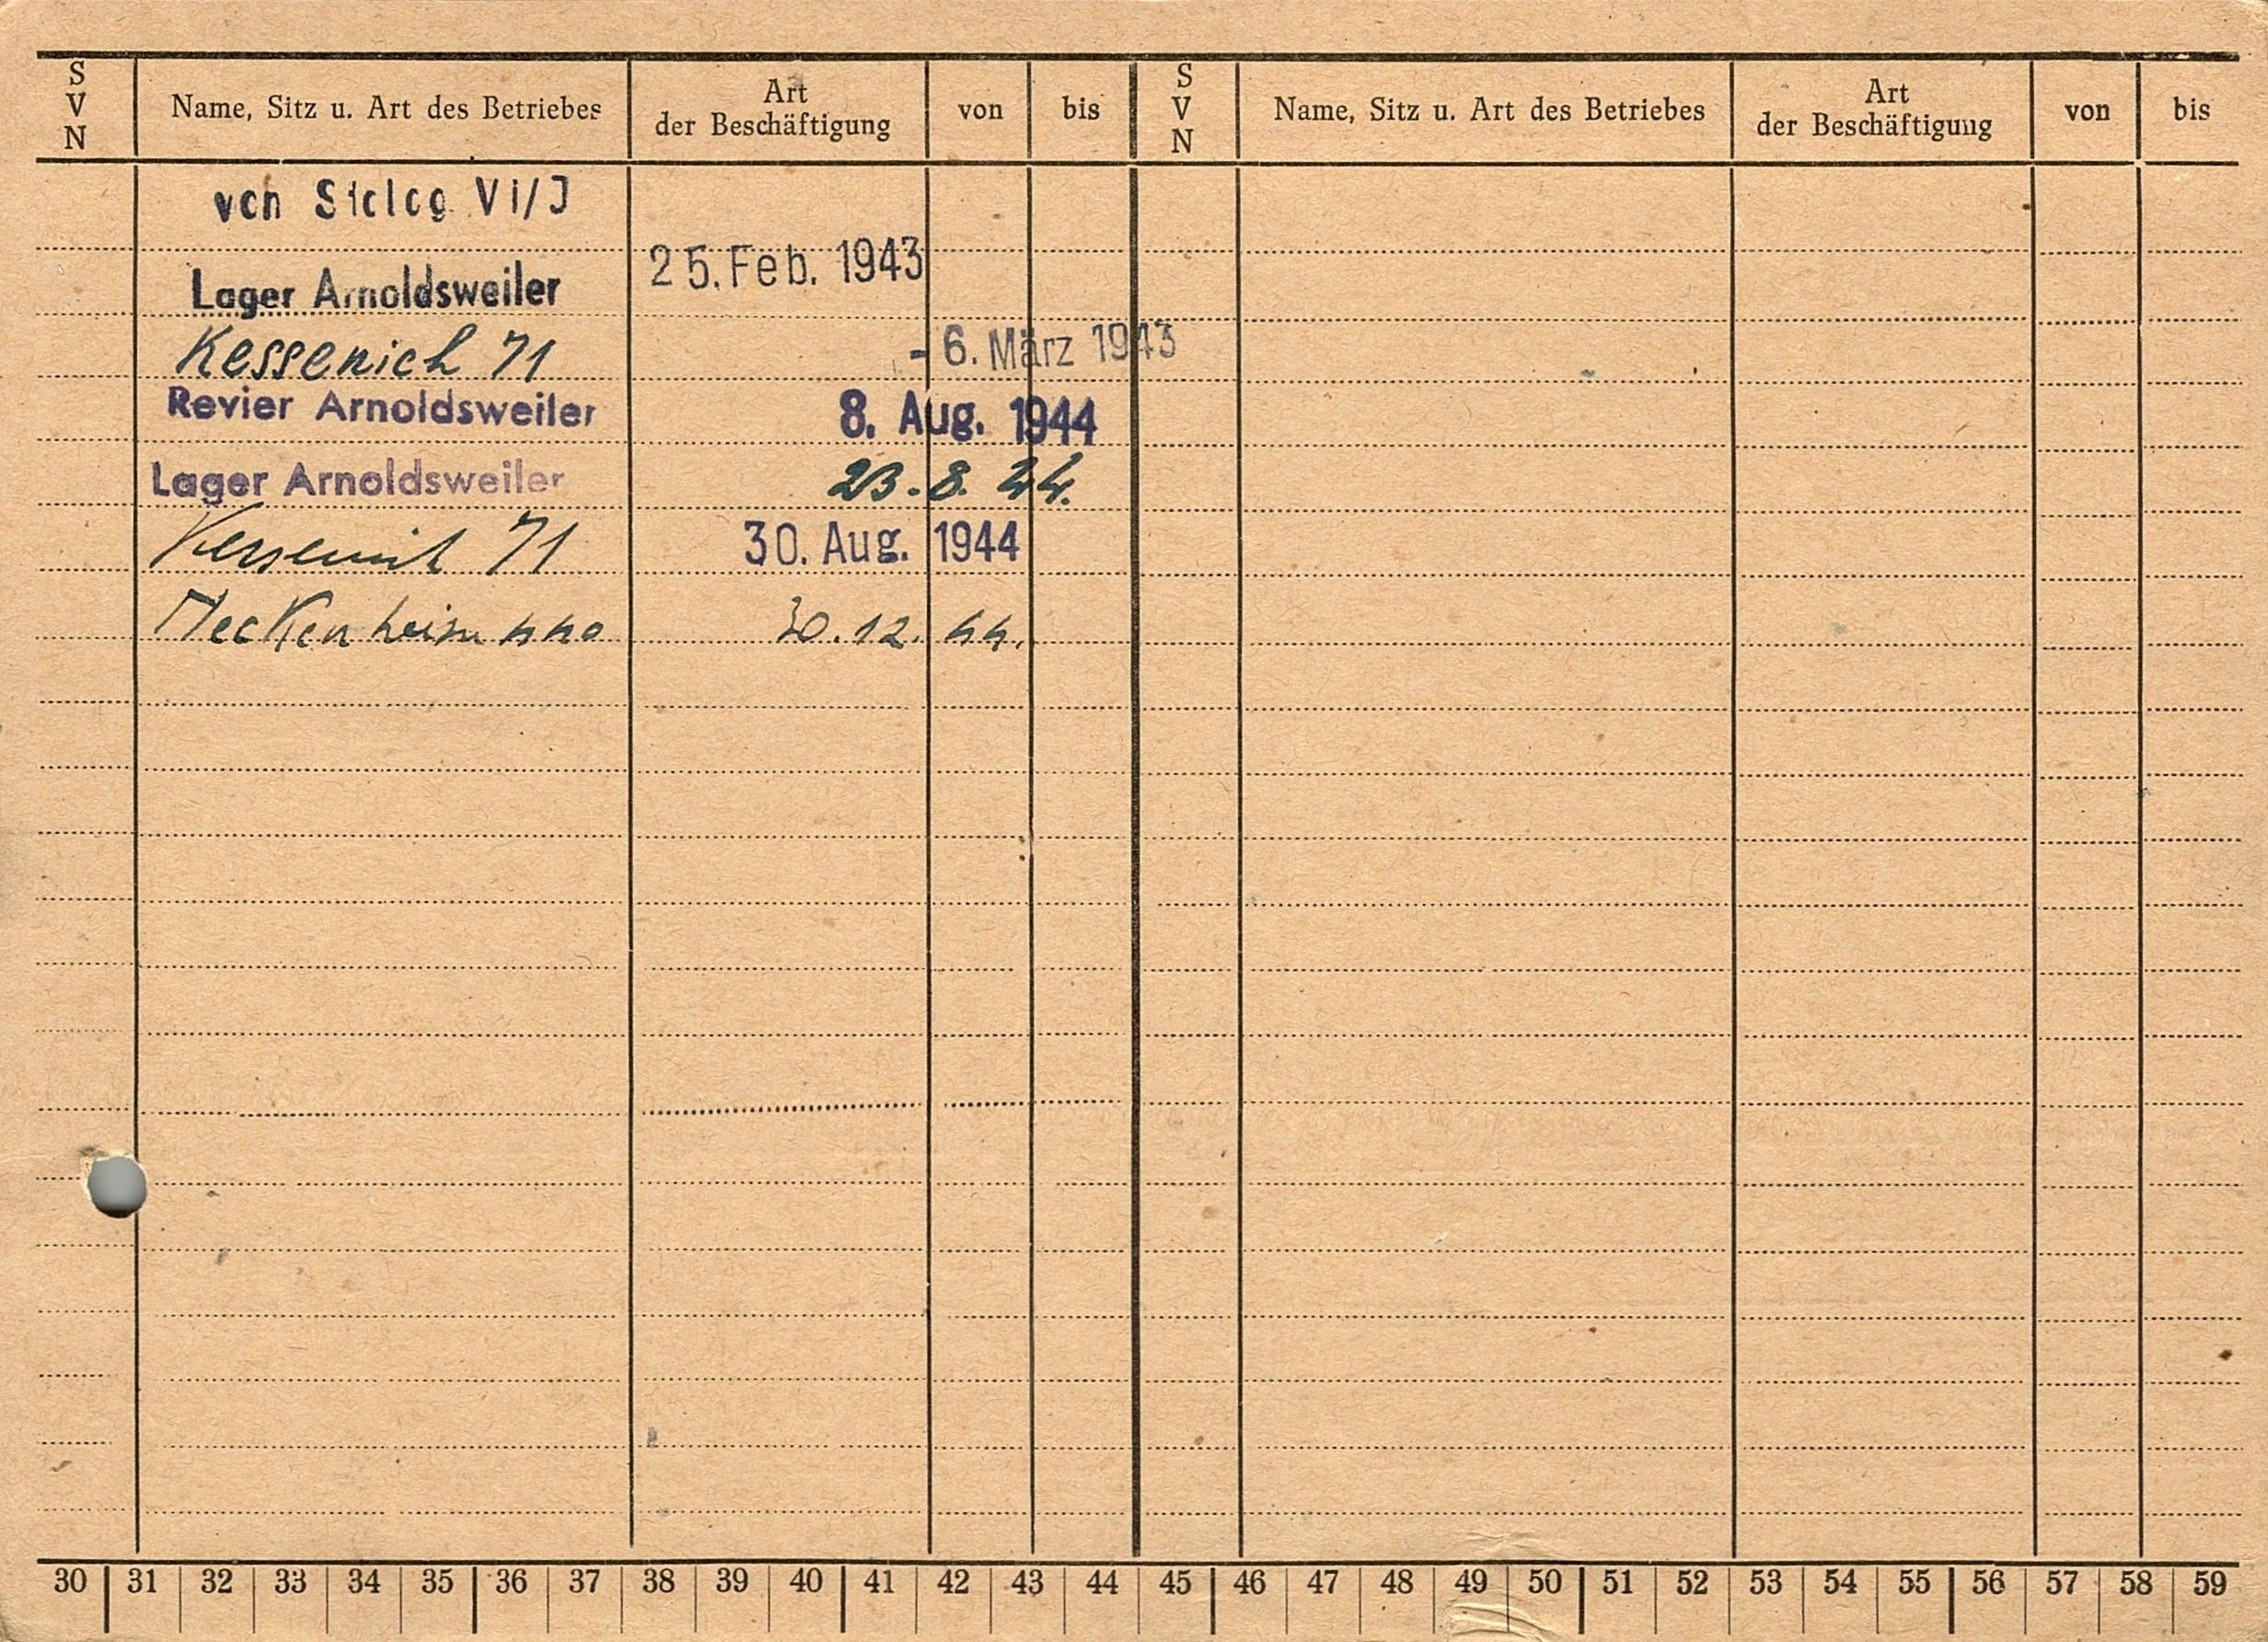 S V N Name, Sitz u. Art des Betriebes Art der Beschäftigung von bis S V N Name, Sitz u. Art des Betriebes Art der Beschäftigung von bis
von Stalag VI/J
Lager Arnoldsweiler 25. Feb. 1943
Kessenich 71 - 6. März 1943
Revier Arnoldsweiler 8. Aug. 1944
Lager Arnoldsweiler 23.8.44.
Kessenich 71 30. Aug. 1944
Meckenheim 440 30.12.44.
30 31 32 33 34 35 36 37 38 39 40 41 42 43 44 45 46 47 48 49 50 51 52 53 54 55 56 57 58 59